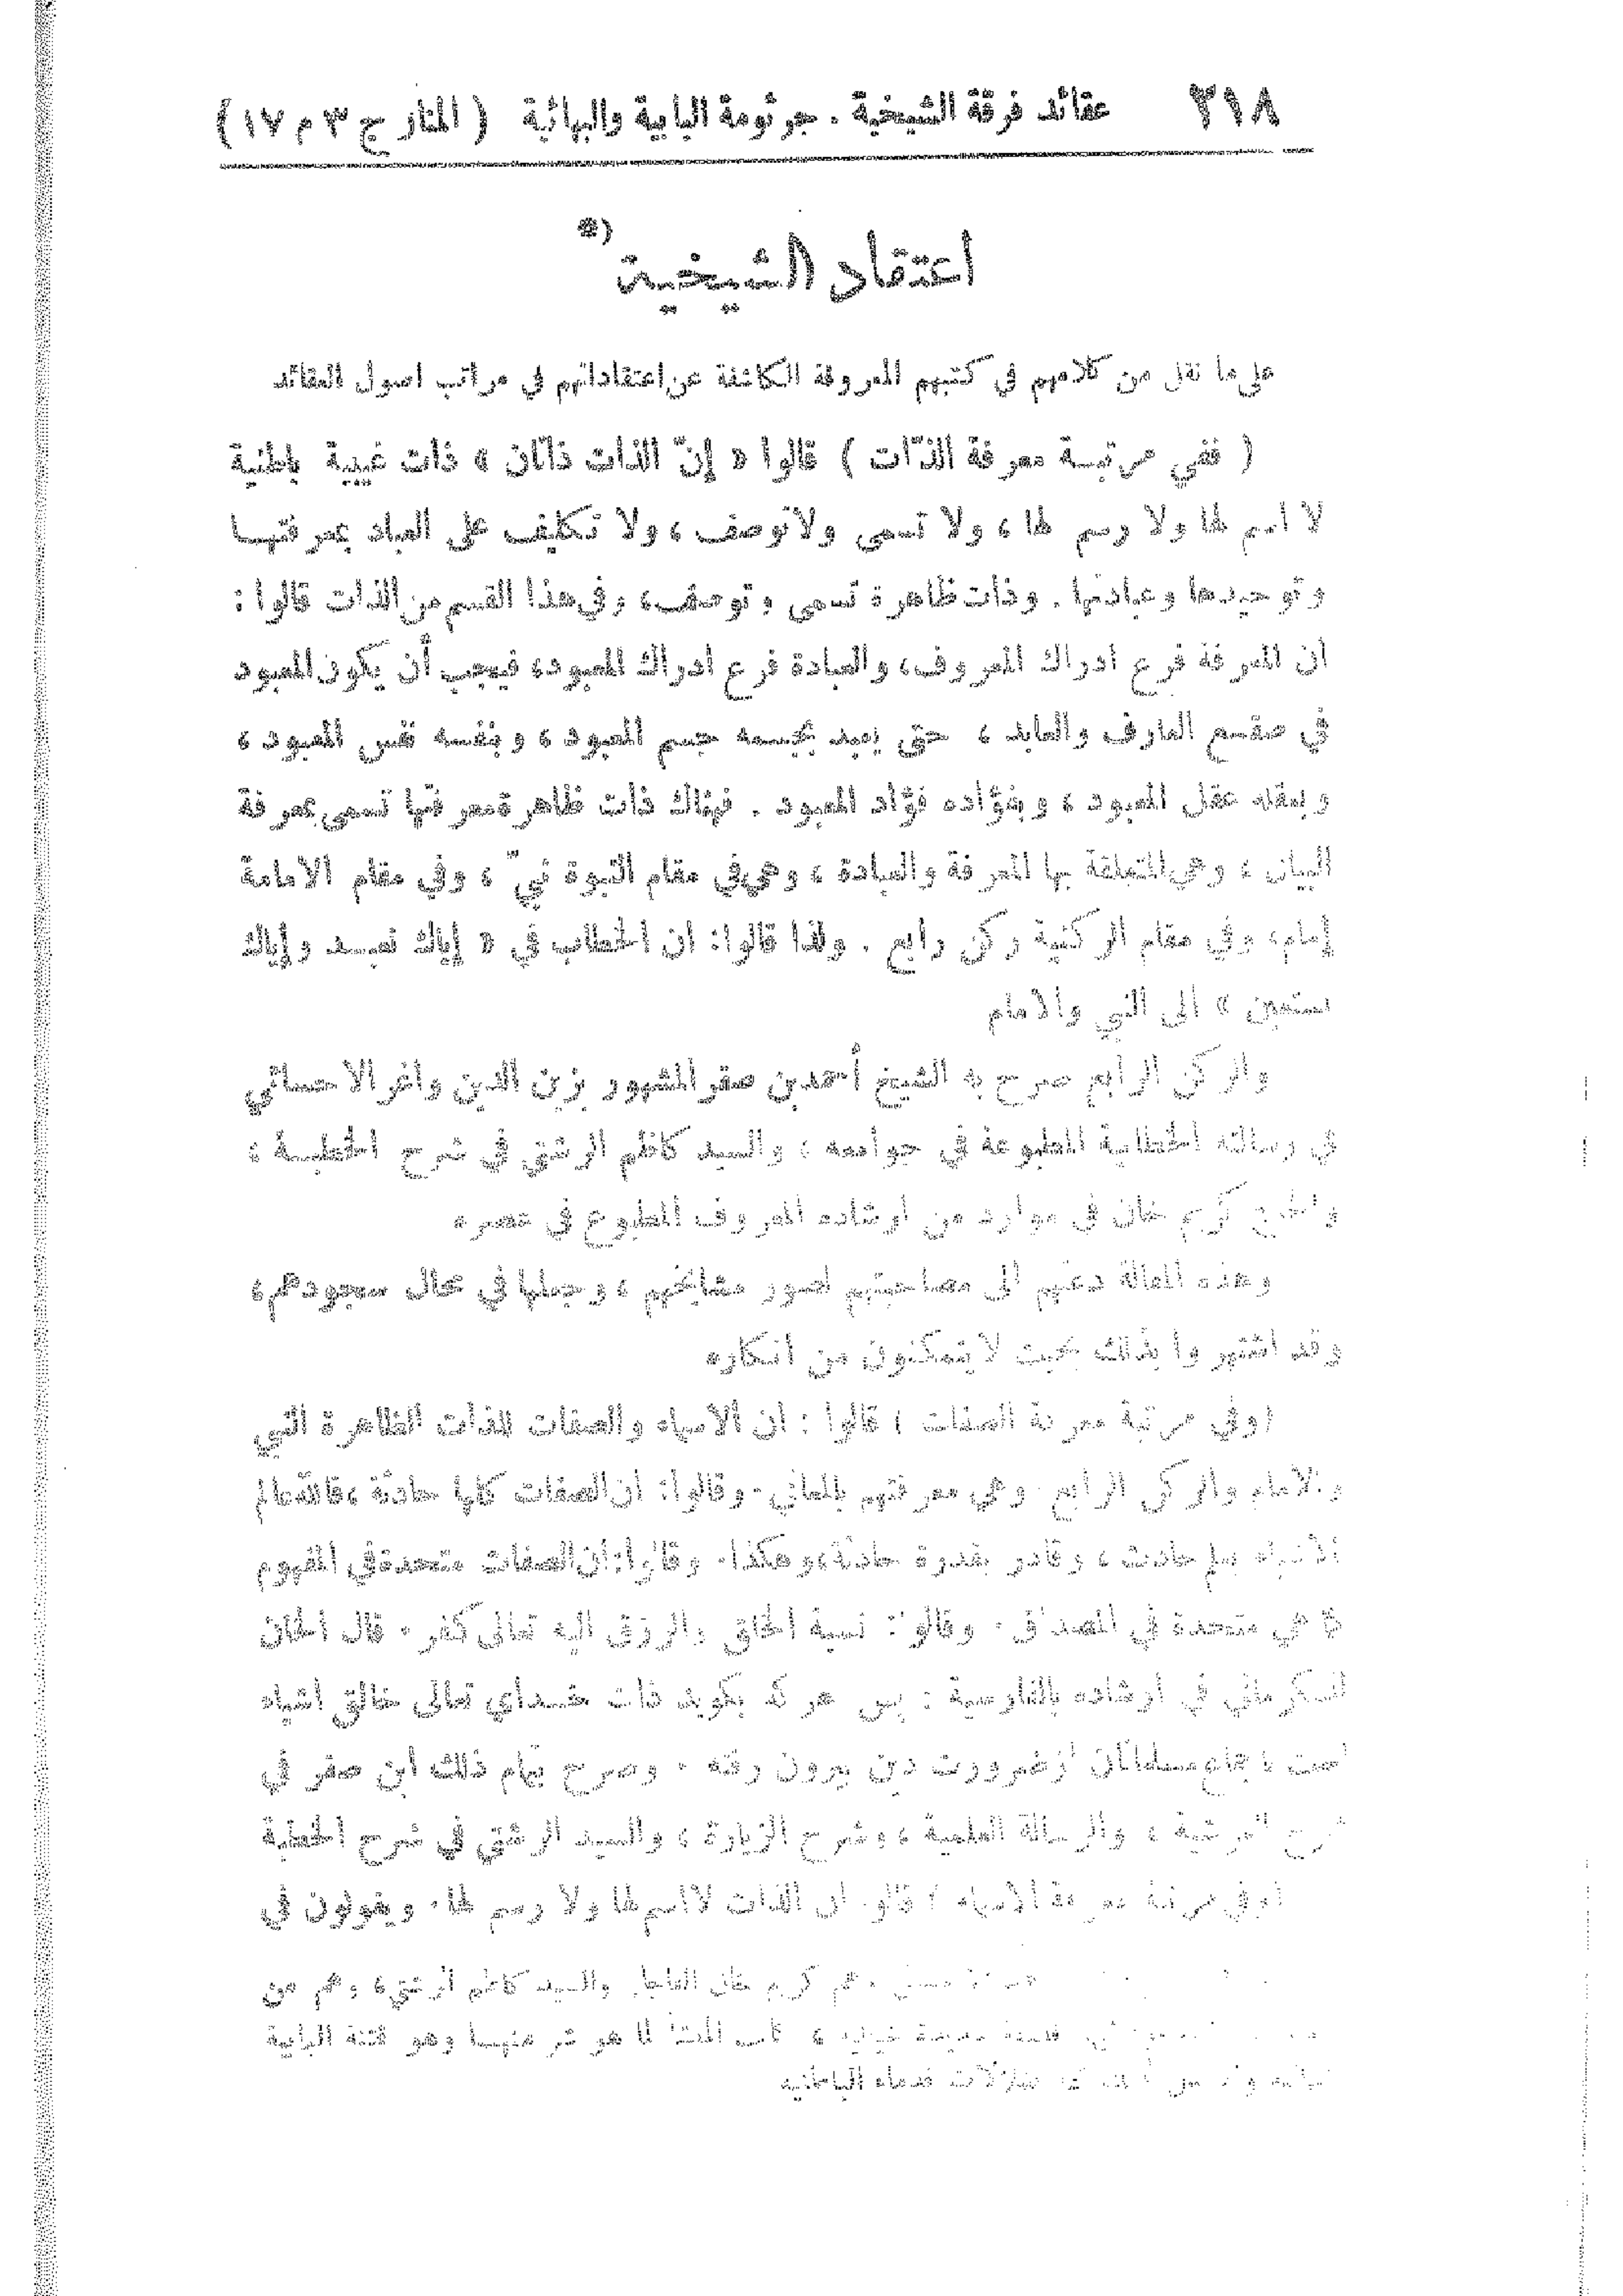 ٢١٨ عقائد فرقة الشيخية . جرثومة البابية والبهائية ( المنار ج ٣ م ١٧ )
اعتقاد الشيخية *)
على ما نقل من كلامهم في كتبهم المعروفة الكاشفة عن اعتقاداتهم في مراتب اصول العقائد
( ففي مرتبة معرفة الذّات ) قالوا « إنّ الذات ذاتان » ذات غيبية باطنية
لا اسم لها ولا رسم لها ، ولا تسمى ولا توصف ، ولا تكليف على العباد بمعرفتها
وتوحيدها وعبادتها . وذات ظاهرة تسمى وتوصف ، وفي هذا القسم من الذات قالوا :
ان المعرفة فرع ادراك المعروف ، والعبادة فرع ادراك المعبود ، فيجب أن يكون المعبود
في صقع العارف والعابد ، حتى يعبد بجسمه جسم المعبود ، وبنفسه نفس المعبود ،
وبعقله عقل المعبود ، وبفؤاده فؤاد المعبود . فهناك ذات ظاهرة معرفتها تسمى بمعرفة
البيان ، وهي المتعلقة بها المعرفة والعبادة ، وهي في مقام النبوة نبيّ ، وفي مقام الامامة
إمام ، وفي مقام الركنية ركن رابع . ولذا قالوا : ان الخطاب في « إياك نعبد وإياك
نستعين » الى النبي والامام
والركن الرابع صرح به الشيخ أحمد بن صقر المشهور بزين الدين واغر الاحسائي
في رسالته الخطابية المطبوعة في جوامعه ، والسيد كاظم الرشتي في شرح الخطبة ،
والحاج كريم خان في موارد من ارشاده المعروف المطبوع في عصره
وهذه المقالة دعتهم الى مصاحبتهم لصور مشايخهم ، وجعلها في محال سجودهم ،
وقد اشتهروا بذلك بحيث لا يتمكنون من انكاره
( وفي مرتبة معرفة الصفات ) قالوا : ان الاسماء والصفات للذات الظاهرة النبي
والامام والركن الرابع وهي معرفتهم بالمعاني . وقالوا : ان الصفات كلها حادثة ، فالله عالم
الاشياء بعلم حادث ، وقادر بقدرة حادثة ، وهكذا . وقالوا : ان الصفات متعددة في المفهوم
كما هي متعددة في المصداق . وقالوا : نسبة الخلق والرزق اليه تعالى كفر . قال الخان
الكرماني في ارشاده بالفارسية : پس هر كه بكويد ذات خداي تعالى خالق اشياء
است باجماع مسلمانان از ضرورت دين بيرون رفته . وصرح بتمام ذلك ابن صقر في
شرح العرشية ، والرسالة العلمية ، وشرح الزيارة ، والسيد الرشتي في شرح الخطبة
( وفي مرتبة معرفة الاسماء ) قالوا ان الذات لا اسم لها ولا رسم لها . ويقولون في
كريم خان القاجار والسيد كاظم الرشتي ، وهم من
كانت المنشأ لما هو شر منها وهو فتنة البابية
ضلالات قدماء الباطنية